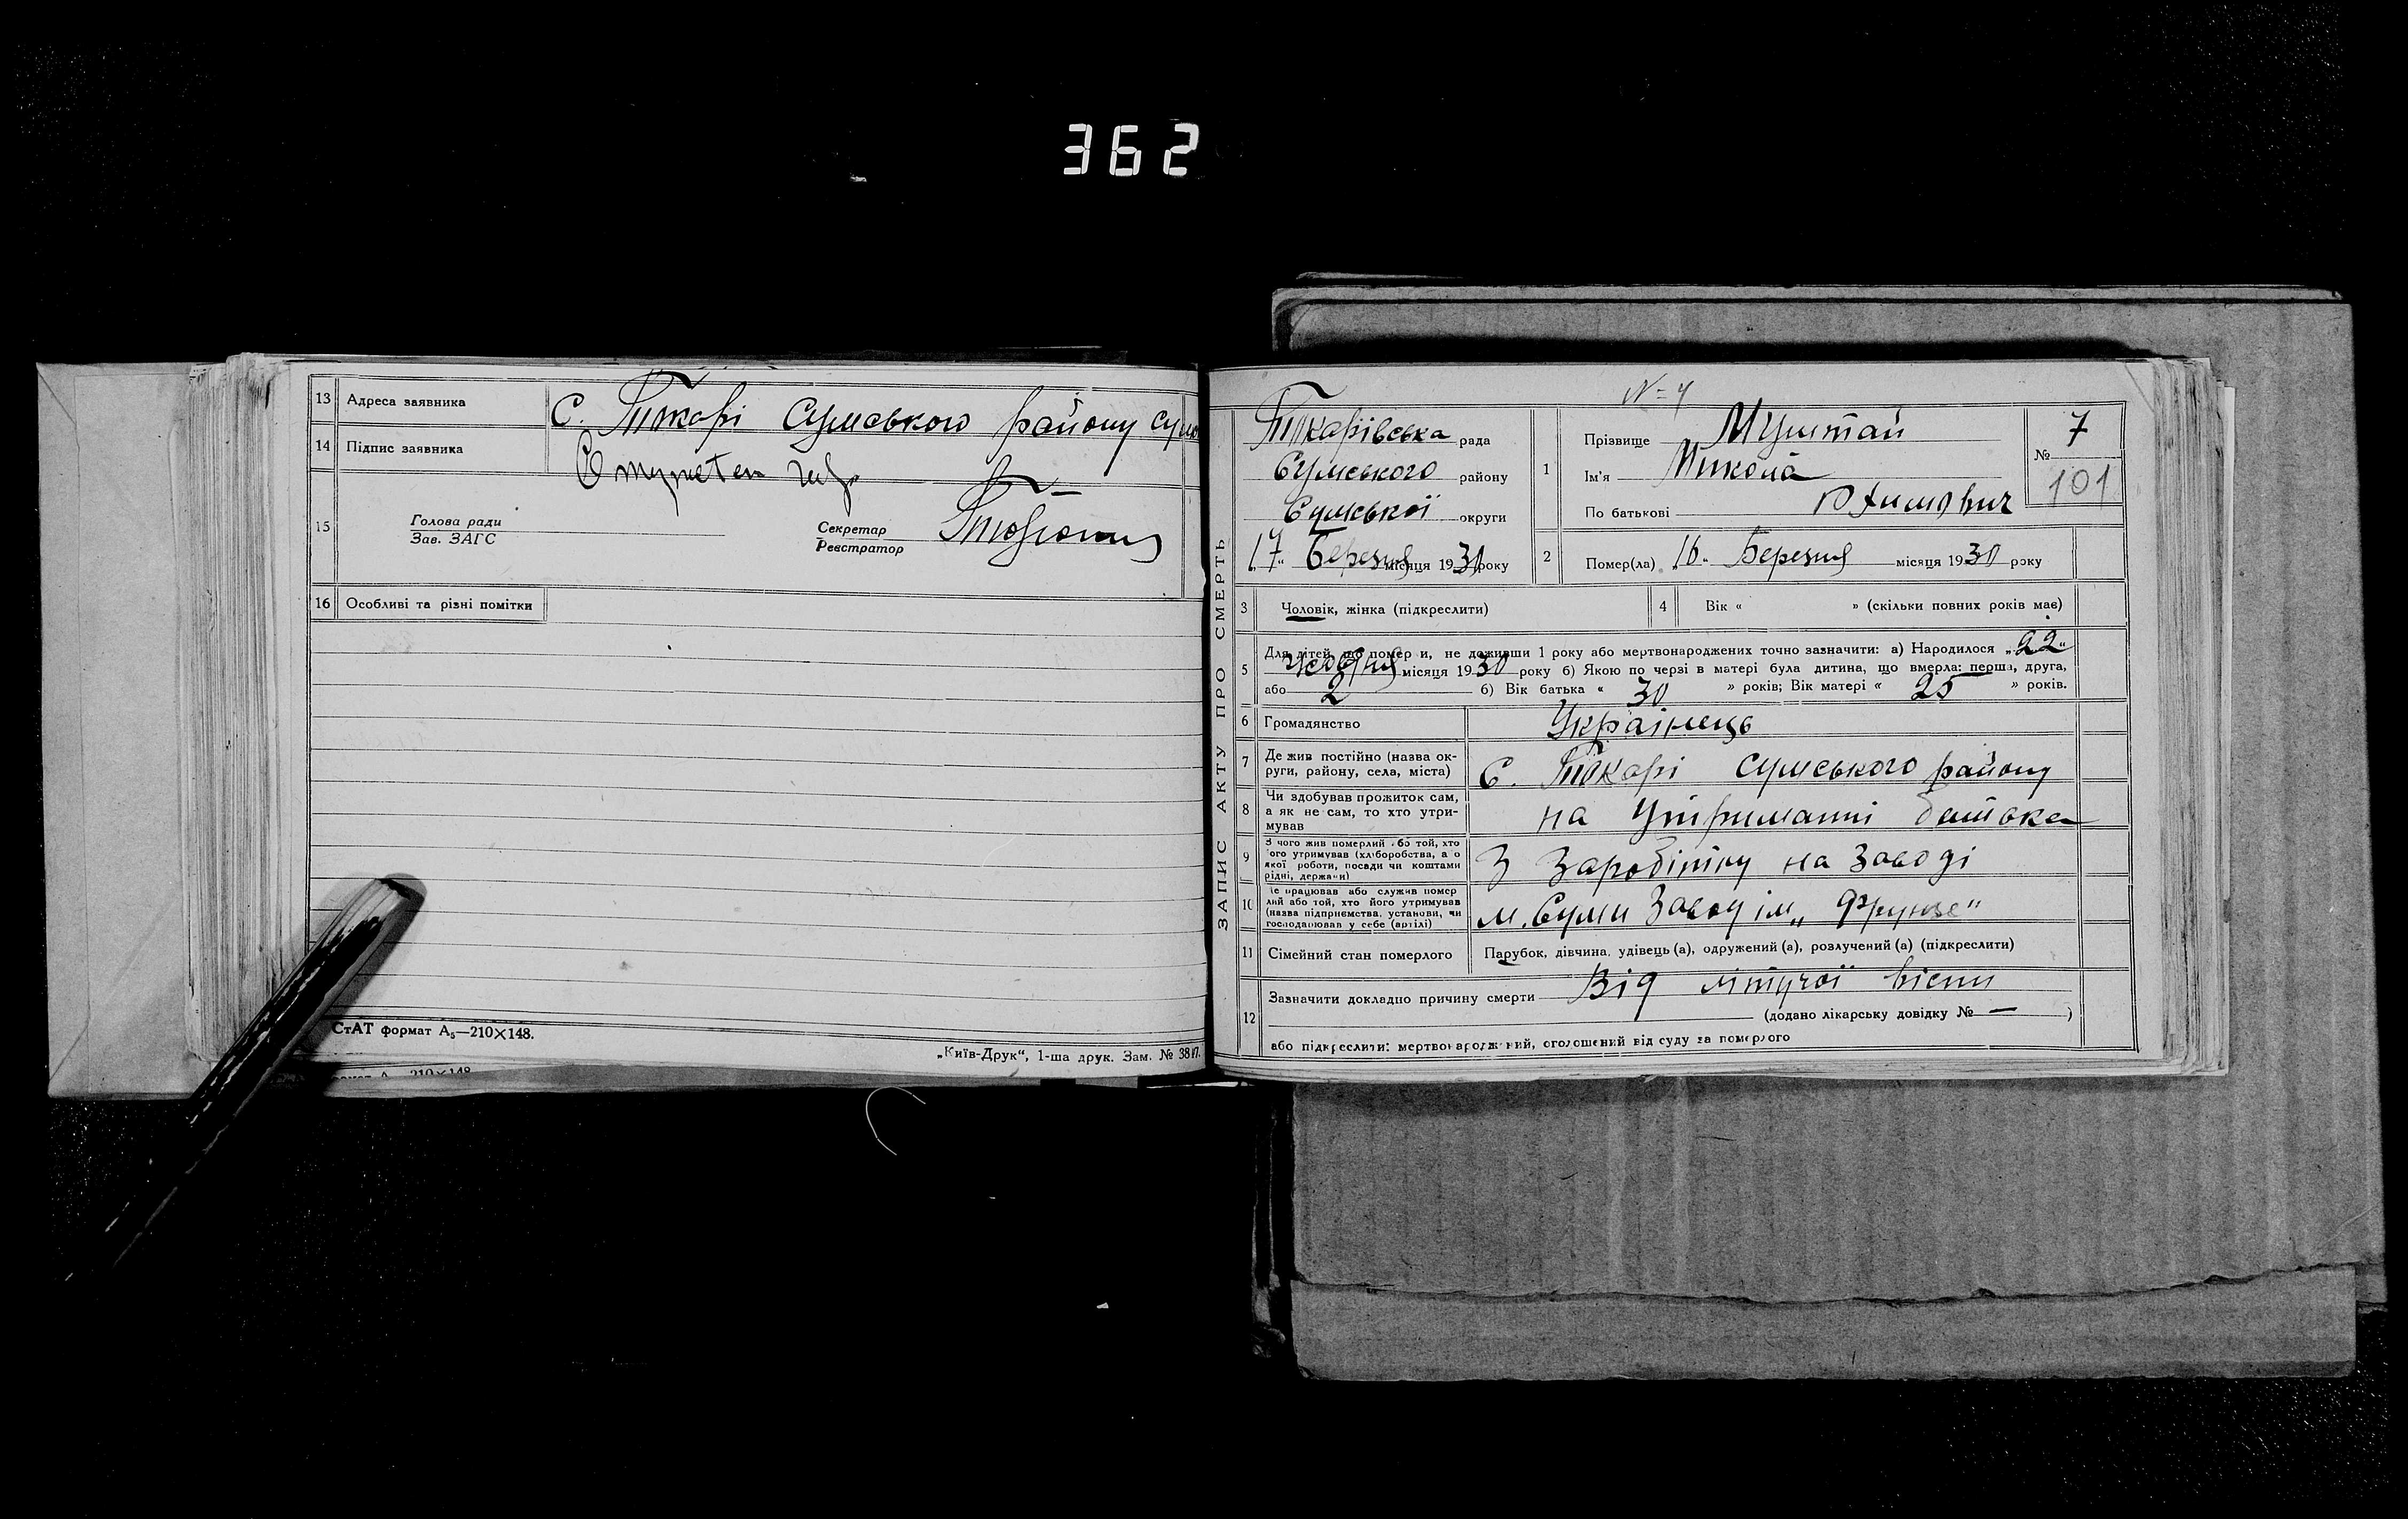 362
13 Адреса заявника С. Токарі Сумського району Сум
14 Підпис заявника
15 Голова ради
Зав. ЗАГС
Секретар
Реєстратор
16 Особливі та різні помітки
СтАТ формат А₅—210×148.
„Київ-Друк“, 1-ша друк. Зам. № 3817.
210×148
ЗАПИС АКТУ ПРО СМЕРТЬ
№ 7
Токарівська рада
Сумського району
Сумської округи
„17“ Березня місяця 1930 року
1 Прізвище Муштай
Ім'я Микола
По батькові Юхимович
№ 7
101
2 Помер(ла) „16“ Березня місяця 1930 року
3 Чоловік, жінка (підкреслити)
4 Вік « » (скільки повних років має)
5 Для дітей, що помер и, не доживши 1 року або мертвонароджених точно зазначити: а) Народилося „22“
місяця 1930 року б) Якою по черзі в матері була дитина, що вмерла: перша, друга,
або 2 б) Вік батька « 30 » років; Вік матері « 25 » років.
6 Громадянство Українець
7 Де жив постійно (назва округи, району, села, міста) С. Токарі Сумського району
8 Чи здобував прожиток сам, а як не сам, то хто утримував на утриманні батька
9 З чого жив померлий або той, хто його утримував (хліборобства, а о якої роботи, посади чи коштами рідні, держави) З Заробітку на Заводі
10 Де працював або служив помер лий або той, хто його утримував (назва підприємства, установи, чи господарював у себе (артілі) м. Суми Завод ім. „Фрунзе“
11 Сімейний стан померлого Парубок, дівчина, удівець (а), одружений (а), розлучений (а) (підкреслити)
12 Зазначити докладно причину смерти Від літучої вієпи
(додано лікарську довідку № — )
або підкреслити: мертвонароджений, оголошений від суду за померлого